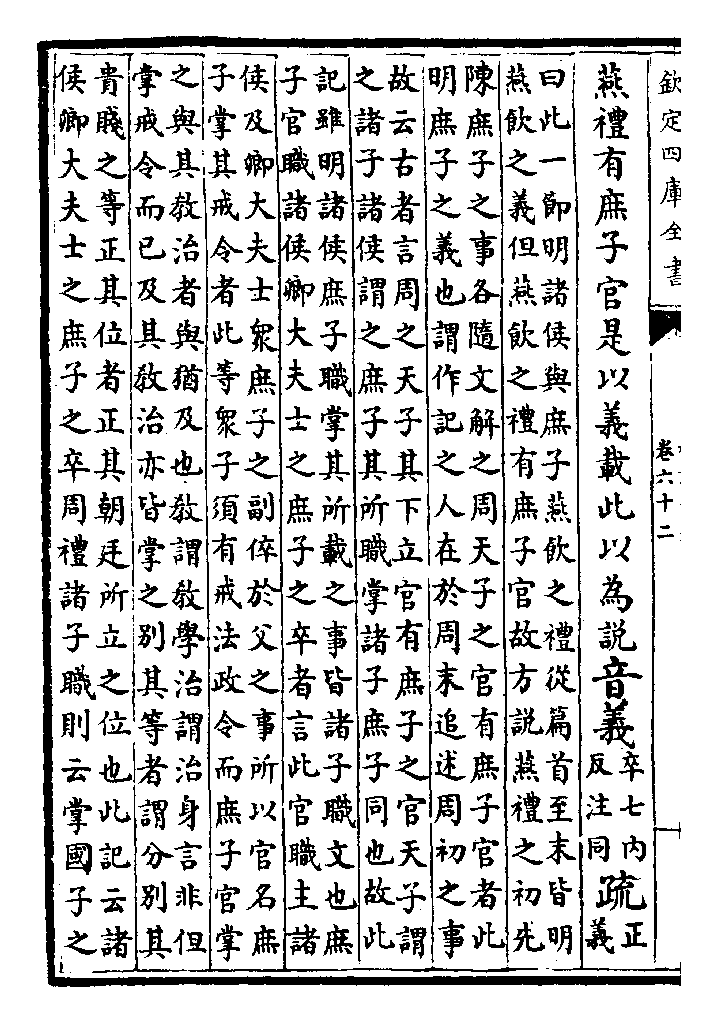 欽定四庫全書
卷六十二
燕禮有庶子官是以義載此以為說音義卒七内反注同疏正義
曰此一節明諸侯與庶子燕飲之禮從篇首至末皆明
燕飲之義但燕飲之禮有庶子官故方說燕禮之初先
陳庶子之事各隨文解之周天子之官有庶子官者此
明庶子之義也謂作記之人在於周末追述周初之事
故云古者言周之天子其下立官有庶子之官天子謂
之諸子諸侯謂之庶子其所職掌諸子庶子同也故此
記雖明諸侯庶子職掌其所載之事皆諸子職文也庶
子官職諸侯卿大夫士之庶子之卒者言此官職主諸
侯及卿大夫士衆庶子之副倅於父之事所以官名庶
子掌其戒令者此等衆子須有戒法政令而庶子官掌
之與其教治者與猶及也教謂教學治謂治身言非但
掌戒令而已及其教治亦皆掌之別其等者謂分別其
貴賤之等正其位者正其朝廷所立之位也此記云諸
侯卿大夫士之庶子之卒周禮諸子職則云掌國子之